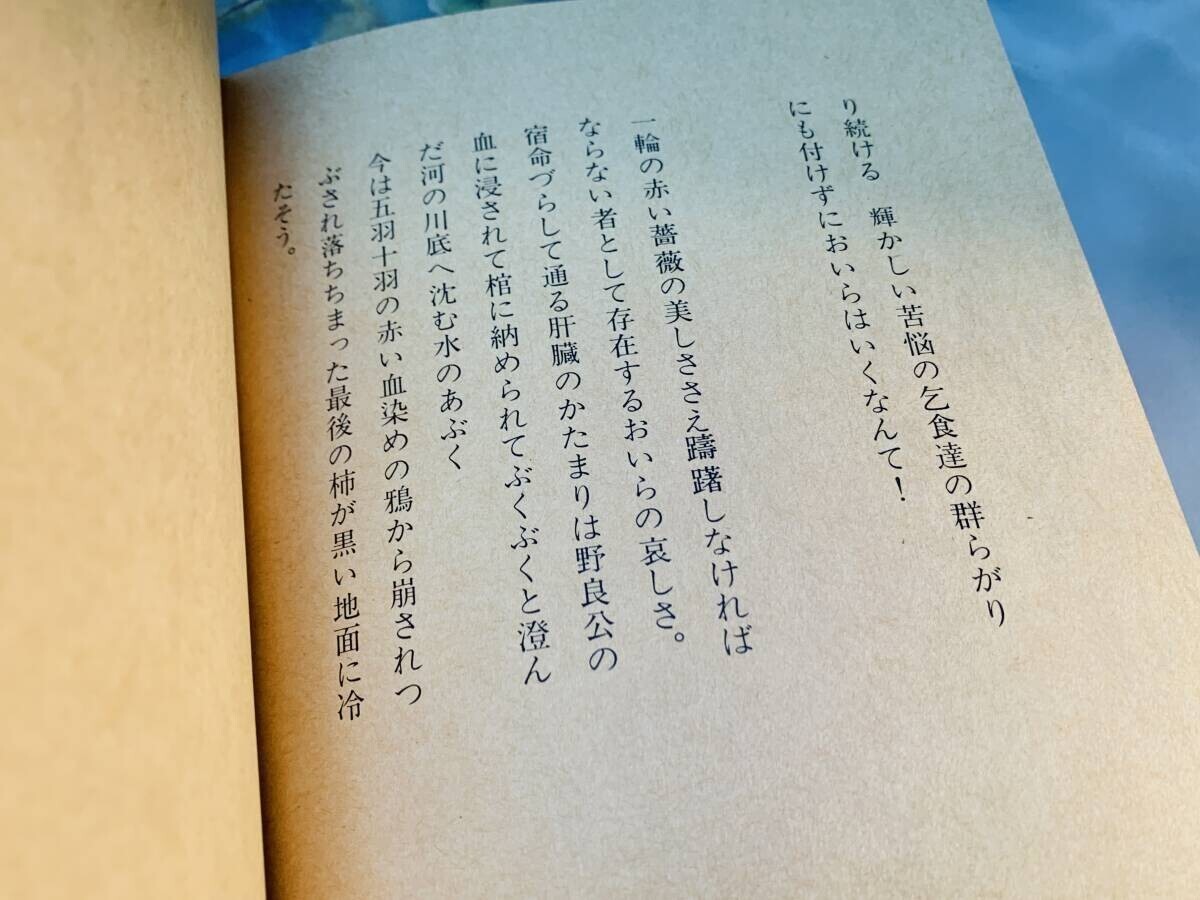 り続ける　輝かしい苦悩の乞食達の群らがり
にも付けずにおいらはいくなんて！
一輪の赤い薔薇の美しささえ躊躇しなければ
ならない者として存在するおいらの哀しさ。
宿命づらして通る肝臓のかたまりは野良公の
血に浸されて棺に納められてぶくぶくと澄ん
だ河の川底へ沈む水のあぶく
今は五羽十羽の赤い血染めの鴉から崩されつ
ぶされ落ちちまった最後の柿が黒い地面に冷
たそう。